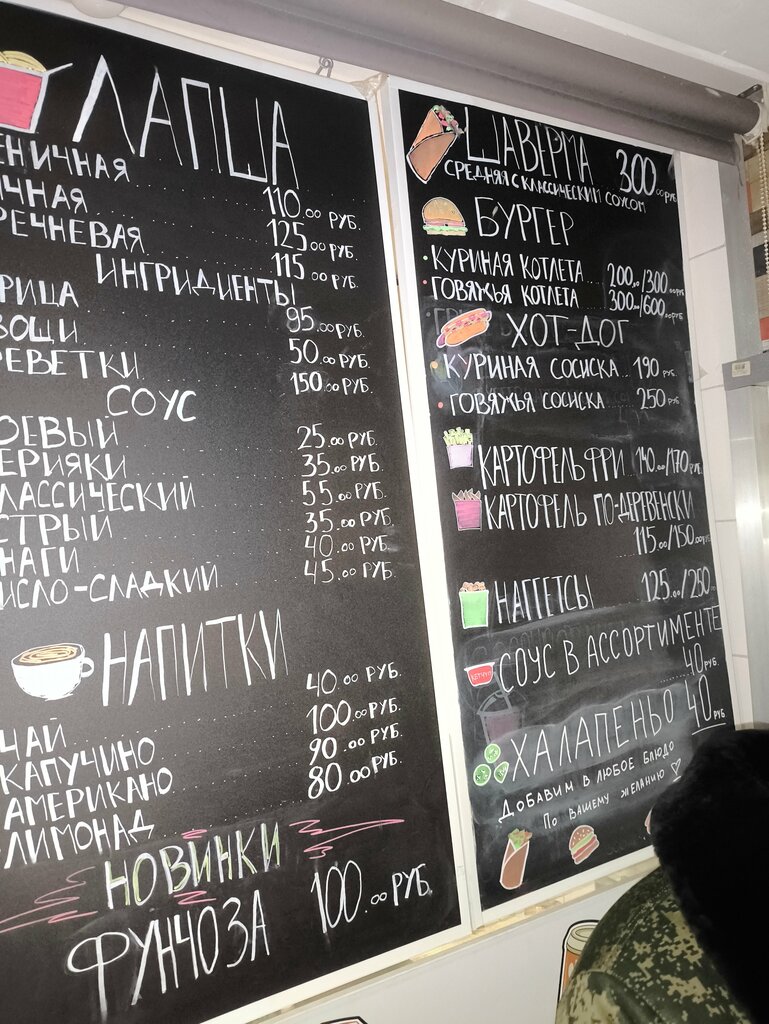 ЛАПША
ЕНИЧНАЯ 110.00 РУБ.
ЧНАЯ 125.00 РУБ.
РЕЧНЕВАЯ 115.00 РУБ.
ИНГРИДИЕНТЫ
РИЦА 95.00 РУБ.
ВОЩИ 50.00 РУБ.
РЕВЕТКИ 150.00 РУБ.
СОУС
ОЕВЫЙ 25.00 РУБ.
ЕРИЯКИ 35.00 РУБ.
ЛАССИЧЕСКИЙ 55.00 РУБ.
СТРЫЙ 35.00 РУБ.
НАГИ 40.00 РУБ.
ИСЛО-СЛАДКИЙ 45.00 РУБ.
НАПИТКИ
ЧАЙ 40.00 РУБ.
КАПУЧИНО 100.00 РУБ.
АМЕРИКАНО 90.00 РУБ.
ЛИМОНАД 80.00 РУБ.
НОВИНКИ
ФУНЧОЗА 100.00 РУБ.
ШАВЕРМА 300.00 РУБ
СРЕДНЯЯ С КЛАССИЧЕСКИМ СОУСОМ
БУРГЕР
КУРИНАЯ КОТЛЕТА 200.00/300.00 РУБ
ГОВЯЖЬЯ КОТЛЕТА 300.00/600.00 РУБ
ХОТ-ДОГ
КУРИНАЯ СОСИСКА... 190 РУБ.
ГОВЯЖЬЯ СОСИСКА 250 РУБ.
КАРТОФЕЛЬ ФРИ 140.00/170 РУБ.
КАРТОФЕЛЬ ПО-ДЕРЕВЕНСКИ
115.00/150.00 РУБ
НАГГЕТСЫ 125.00/250.00
СОУС В АССОРТИМЕНТЕ
40 РУБ.
КЕТЧУП
ХАЛАПЕНЬО 40 РУБ.
ДОБАВИМ В ЛЮБОЕ БЛЮДО
ПО ВАШЕМУ ЖЕЛАНИЮ